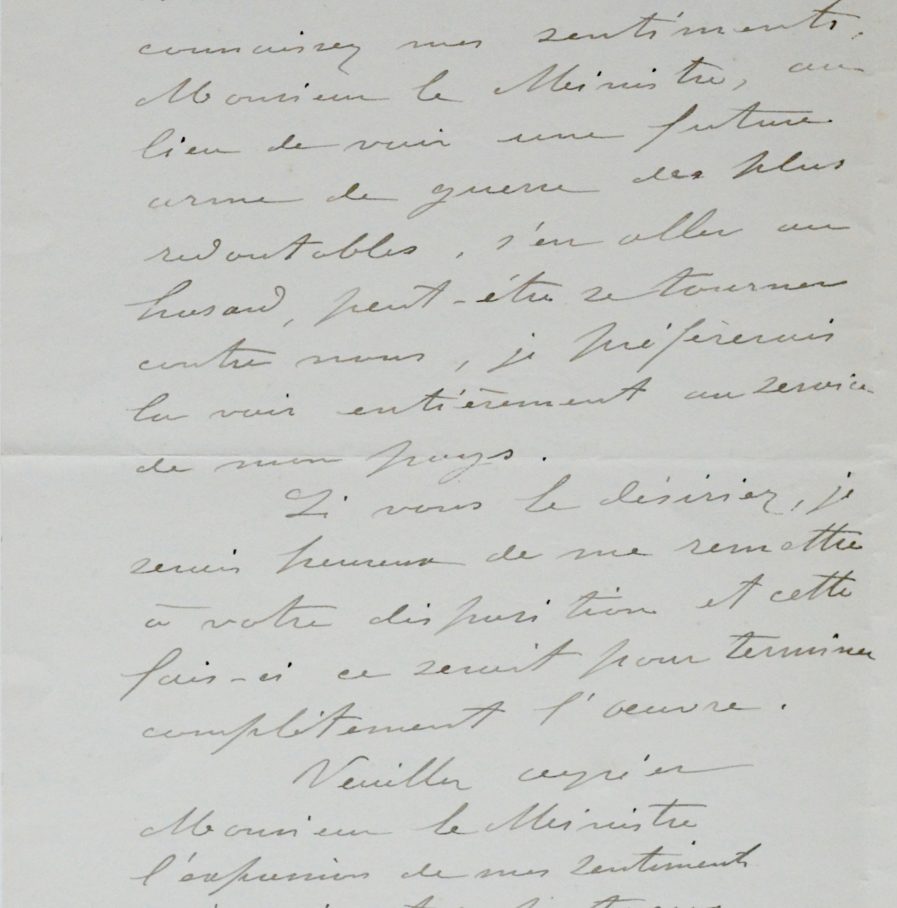 connaissez mes sentiments,
Monsieur le Ministre, au
lieu de voir une future
arme de guerre des plus
redoutables, s'en aller au
hasard, peut-être se tourner
contre nous, je préfèrerais
la voir entièrement au service
de mon pays.
Si vous le désiriez, je
serais heureux de me remettre
à votre disposition et cette
fois-ci ce serait pour terminer
complètement l'œuvre.
Veuillez agréer
Monsieur le Ministre
l'expression de mes sentiments